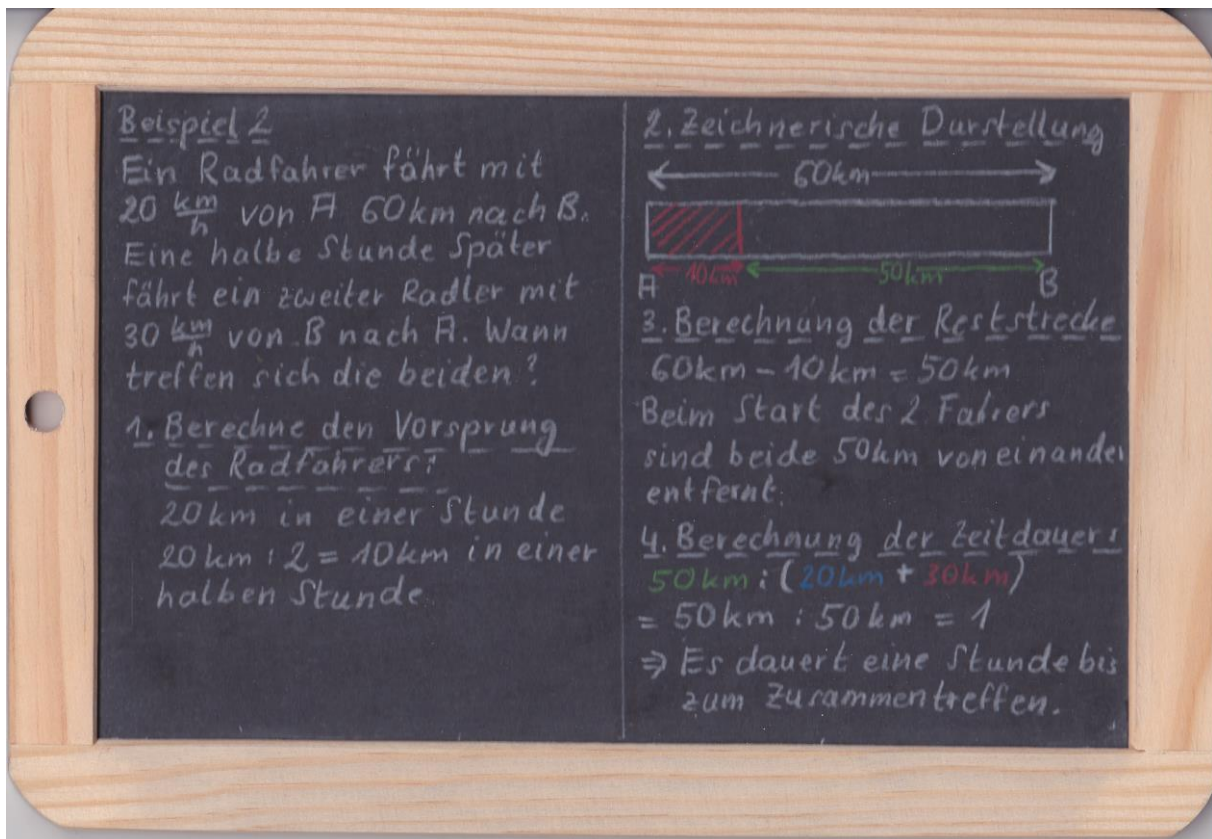 Beispiel 2
Ein Radfahrer fährt mit
20 km/h von A 60km nach B.
Eine halbe Stunde Später
fährt ein zweiter Radler mit
30 km/h von B nach A. Wann
treffen sich die beiden?
1. Berechne den Vorsprung
des Radfahrers:
20km in einer Stunde
20km : 2 = 10km in einer
halben Stunde
2. Zeichnerische Darstellung
60km
10km 50km
A B
3. Berechnung der Reststrecke
60km - 10km = 50km
Beim Start des 2 Fahrers
sind beide 50km voneinander
entfernt.
4. Berechnung der Zeitdauer:
50km : (20km + 30km)
= 50km : 50km = 1
⇒ Es dauert eine Stunde bis
zum Zusammentreffen.